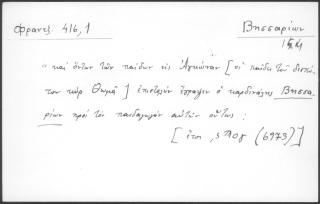 Φραντζ. 416,1
Βησσαρίων
"καὶ ὄντων τῶν παίδων εἰς Ἀγκῶναν [οἱ παῖδες τοῦ δεσπό-
του κὺρ Θωμᾶ] ἐπιστολὴν ἔγραψεν ὁ καρδινάλης Βησσα-
ρίων πρὸς τὸν παιδαγωγὸν αὐτῶν οὕτως:
[ἔτει ,ςϠογ (6973)]